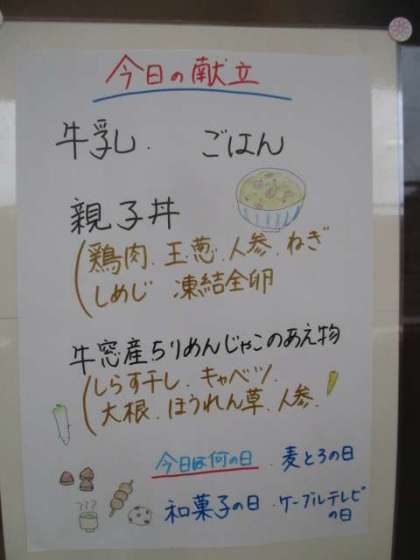 今日の献立
牛乳. ごはん
親子丼
(鶏肉.玉葱.人参.ねぎ
しめじ 凍結全卵
牛窓産ちりめんじゃこのあえ物
(しらす干し.キャベツ.
大根.ほうれん草.人参.
今日は何の日.麦とろの日
和菓子の日.ケーブルテレビ
の日